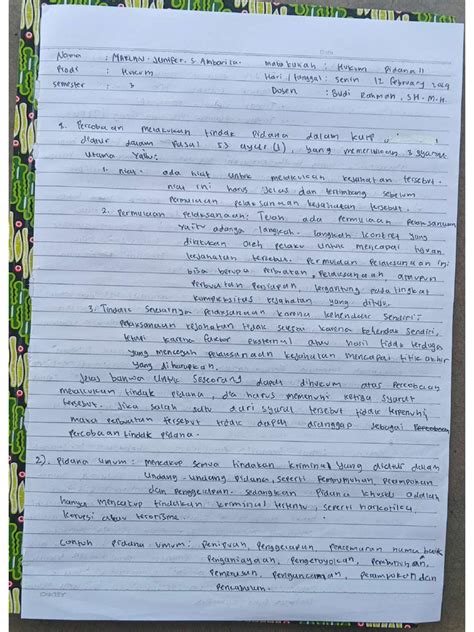 Nama : MARLAN JUNIFER. S. Ambarita. Mata kuliah : Hukum Pidana II
Prodi : Hukum Hari / tanggal : Senin 12 february
semester : 3 Dosen : Budi Rahman, SH. M.H.
Percobaan melakukan tindak pidana dalam KUHP
diatur dalam Pasal 53 ayat (1), yang memerlukan 3 syarat
utama yaitu:
1. niat : ada niat untuk melakukan kejahatan tersebut.
niat ini harus jelas dan tertimbang sebelum
Permulaan pelaksanaan kejahatan tersebut.
2. Permulaan pelaksanaan : Telah ada permulaan pelaksanaan
yaitu adanya langkah - langkah konkret yang
dilakukan oleh pelaku untuk mencapai tujuan
kejahatan tersebut. Permulaan pelaksanaan ini
bisa berupa perbuatan, pelaksanaan, ataupun
Perbuatan Persiapan, tergantung pada tingkat
kompleksitas kejahatan yang dituju.
3. Tindak selesainya pelaksanaan karena kehendak sendiri :
Pelaksanaan kejahatan tidak selesai karena kehendak sendiri,
tetapi karena faktor eksternal atau hasil tidak terduga
yang mencegah pelaksanaan kejahatan mencapai titik akhir
yang diharapkan.
Jelas bahwa untuk seseorang dapat dihukum atas percobaan
melakukan tindak pidana, dia harus memenuhi ketiga syarat
tersebut. Jika salah satu dari syarat tersebut tidak terpenuhi,
maka perbuatan tersebut tidak dapat dianggap sebagai
Percobaan tindak pidana.
2). Pidana umum : mencakup semua tindakan kriminal yang diatur dalam
Undang-undang pidana, seperti Pembunuhan, Perampokan
dan Penggelapan. sedangkan Pidana khusus adalah
hanya mencakup tindakan kriminal tertentu, seperti narkotika,
korupsi atau terorisme.
Contoh Pidana umum : penipuan, Penggelapan, pencemaran nama baik
Penganiayaan, Pengeroyokan, Pembunuhan,
Pemerasan, Pengancaman, perampokan dan
Pencabulan.